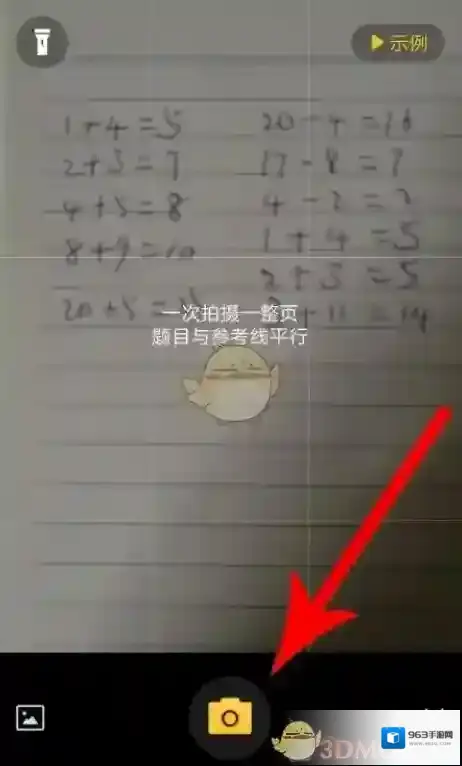 示例
1+4=5
20-4=16
2+5=7
17-8=?
4+5=8
8+9=10
1+4=5
2+3=5
20+5=
+11=14
一次拍摄一整页
题目与参考线平行
3DM
963手游网